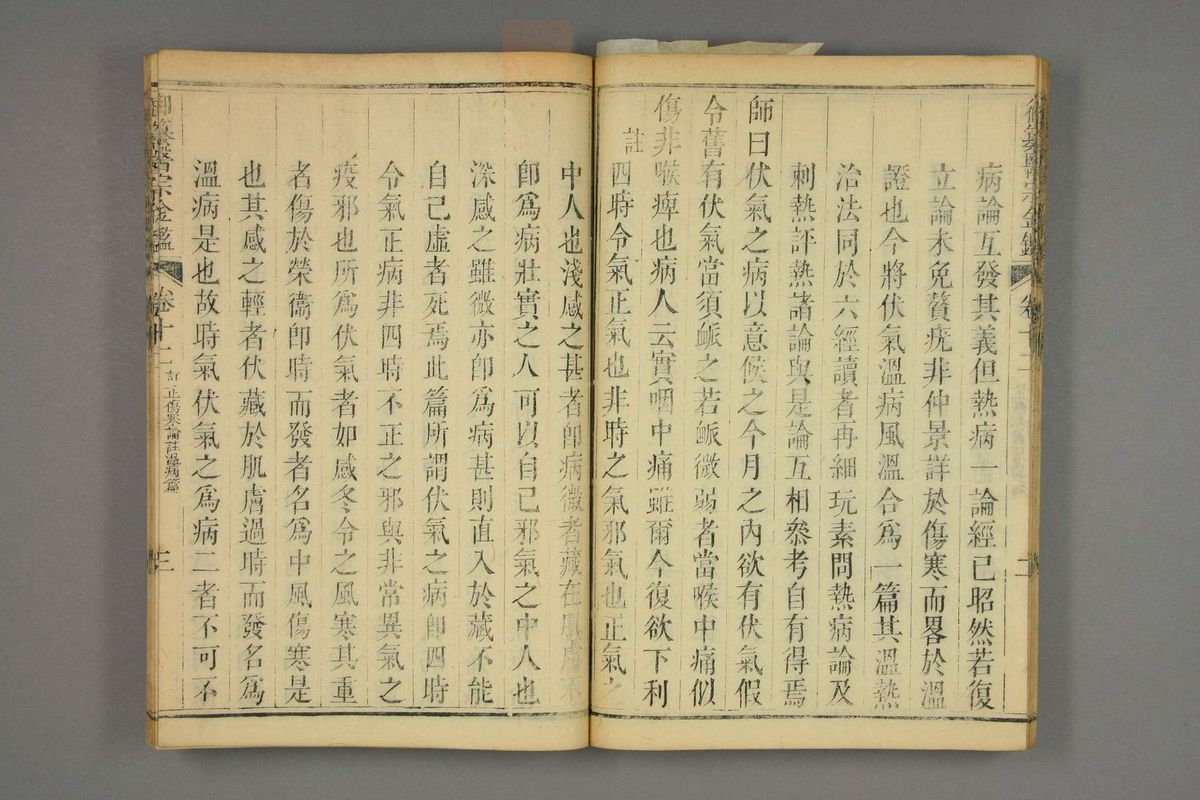 病論互發其義但熱病一論經已昭然若復
立論未免贅疣非仲景詳於傷寒而畧於溫
證也今將伏氣溫病風溫合爲一篇其溫熱
治法同於六經讀者再細玩素問熱病論及
刺熱評熱諸論與是論互相參考自有得焉
師曰伏氣之病以意候之今月之內欲有伏氣假
令舊有伏氣當須脈之若脈微弱者當喉中痛似
傷非喉痺也病人云實咽中痛雖爾今復欲下利
註四時令氣正氣也非時之氣邪氣也正氣之
中人也淺感之甚者卽病微者藏在肌膚不
卽爲病壯實之人可以自已邪氣之中人也
深感之雖微亦卽爲病甚則直入於藏不能
自已虛者死焉此篇所謂伏氣之病卽四時
令氣正病非四時不正之邪與非常異氣之
疫邪也所爲伏氣者如感冬令之風寒其重
者傷於榮衞卽時而發者名爲中風傷寒是
也其感之輕者伏藏於肌膚過時而發名爲
溫病是也故時氣伏氣之爲病二者不可不
御纂醫宗金鑑 卷十二 訂正傷寒論註溫病篇 三